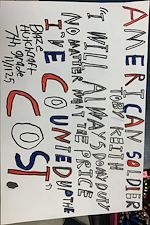 AMERICAN SOLDIER
TOBY KEITH
"I WILL ALWAYS DO MY DUTY
NO MATTER WHAT THE PRICE
I'VE COUNTED UP THE
COST"
7th grade